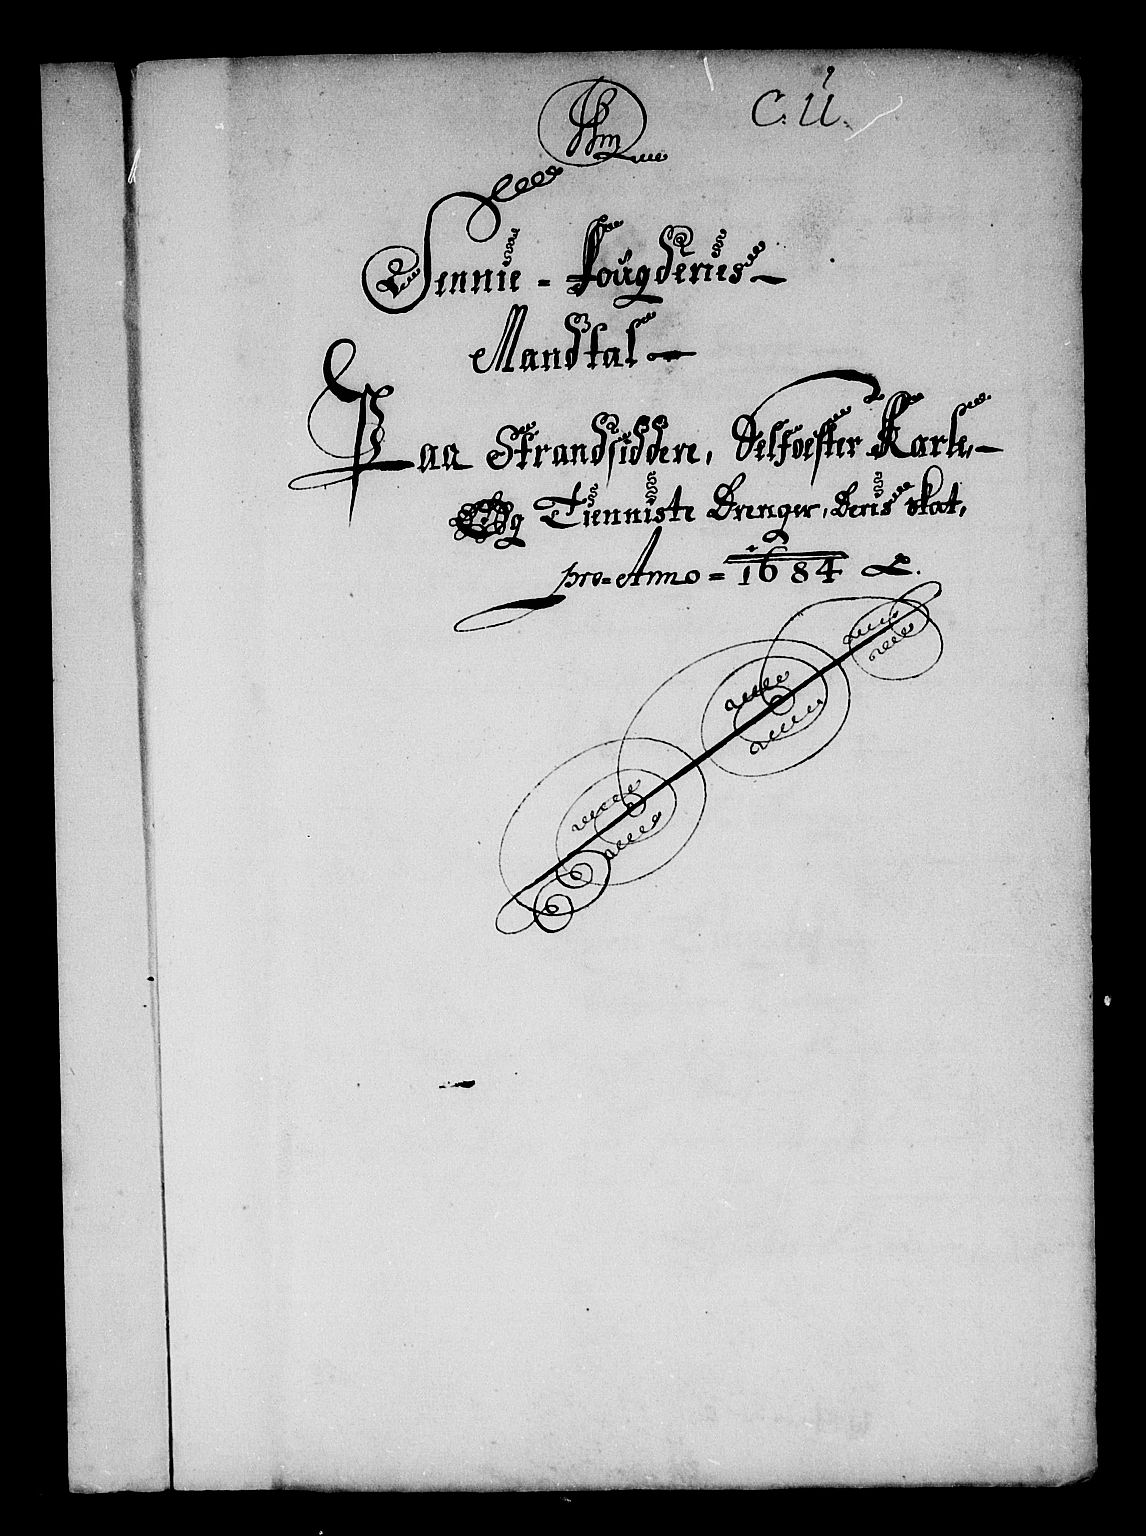 C. Ü.
Sennie = Fougderies
Mandtal
Paa Strandsiddere, Selfoester Karle,
Og Tienniste Drenger, Deris skat,
pro = Anno = 1684